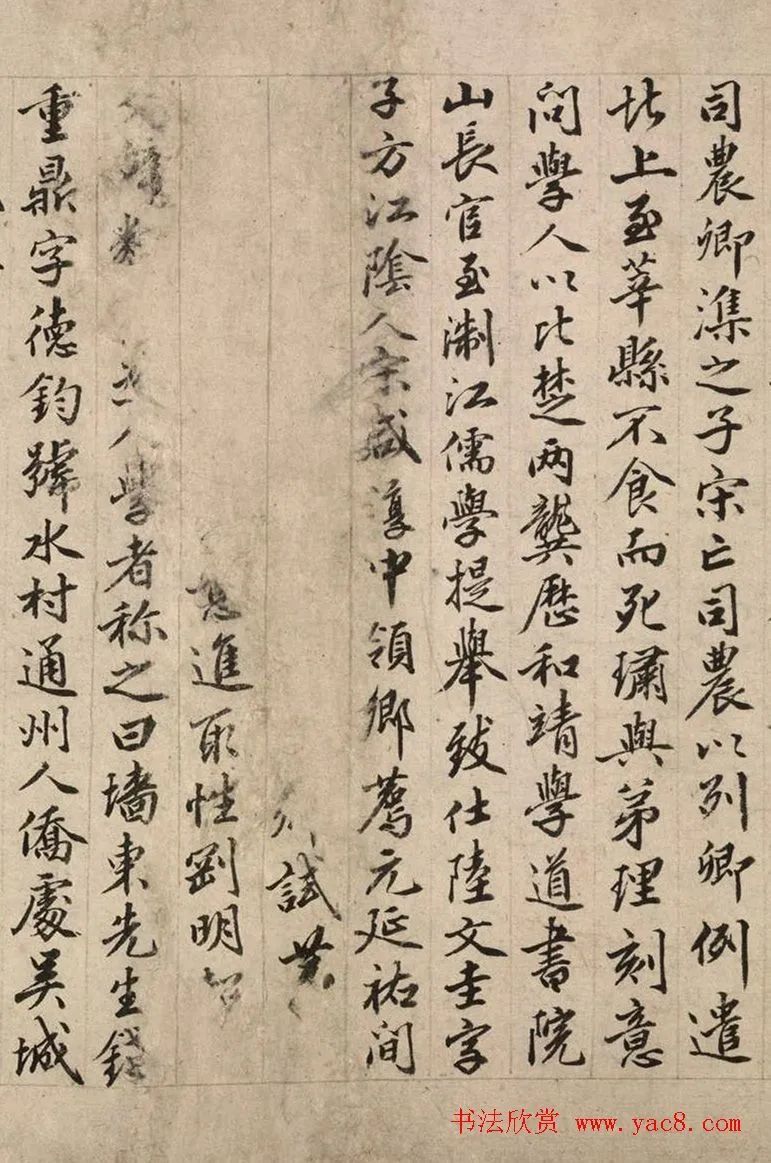 司農卿潗之子宋亡司農以列卿例遣
北上至莘縣不食而死璛與弟理刻意
問學人以比楚两龔歷和靖學道書院
山長官至淛江儒學提舉致仕陸文圭字
子方江陰人宋咸淳中領鄉薦元延祐間
試
進取性劉明
人學者称之曰墻東先生錢
重鼎字德鈞號水村通州人僑處吴城
书法欣赏 www.yac8.com